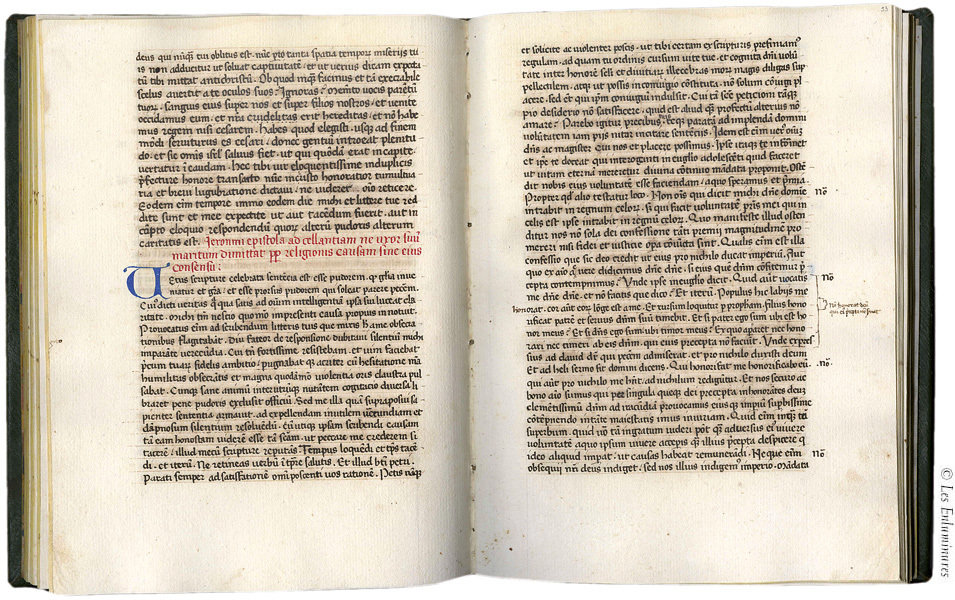 deus qui nũq̃ tui oblitus est. nũc ꝓ tanta spatia tempor miserijs tu
is non adducitur ut soluat captiuitatẽ. et ut uerius dicam expeta
tũ tibi mittat antichristũ. Ob quod mq̃ facinus et tã execrabile
scelus auertit a te oculos suos? Ignoras? memẽto uocis parẽtũ
tuor. sanguis eius super nos et super filios nostros. et uenite
occidamus eum. et nr̃a crudelitas erit hereditas. et nõ habe
mus regem nisi cesarem. habes quod elegisti. usq̃ ad finem
mõdi seruiturus es cesari. donec gentiũ introeat plenitu
do. et sic omis isrl̃ saluus fiet. ut qui quõdã erat in capite.
uertatur ĩ caudam. Hec tibi uir eloquentissime in duplicis
p̃fecture honore transacto nũc in xp̃o honoratior tumultua
ria et breui lugubratione dictaui. ne uiderer oĩo reticere.
Eodem eim tempore immo eodem die michi et littere tue red
dite sunt et mee expedite. ut aut tacẽdum fuerit. aut in
cũpto eloquio respondendũ. quor alterũ pudoris alterum
caritatis est. Jeronimi epistola ad cellantiam ne uxor suũ
maritum dimittat ꝓp̃ religionis causam sine eius
consensu:
Uetus scripture celebrata sentẽcia est. esse pudorem. q̃ gl̃ia inue
niatur et gr̃a. et esse prorsus pudorem qui soleat parere peccm̃.
Cui dicti ueritas q̃ qua satis ad oĩum intelligentiã ipsa sui luceat cla
ritate. michi tñ nescio quomõ impresenti causa propius innotuit.
Prouocatus eim ad scribendum litteris tuis que miris hãc me obsecra
tionibus flagitabãt. Diu fateor de responsione dubitaui silentiũ michi
imparãte uerecũdia. Cui tñ fortissime resistebam. et uim faciebat
precum tuar fidelis ambitio. pugnabat q̃ acriter cũ hesitatione mea
humilitas obsecrãtis. et magna quodãmõ uiolentia oris claustra pul
sabat. Cunq̃ sane animũ inter utrũq̃ nutãtem cogitatio diuersa li
braret. pene pudoris exclusit officiũ. Sed me illa quã supra posui sa
pienter sententia armauit. ad expellendam inutilem uerecundiam et
dãpnosum silentium resoluẽdũ. cũ utiq̃ ipsam scribendi causam
tã eam honestam uiderẽ esse tã sc̃am. ut peccare me crederem si
tacerẽ. illud mecũ scripture reputãs. Tempus loquẽdi. et tp̃s tacẽ
di. et iterũ. Ne retineas uerbũ ĩ tp̃re salutis. Et illud bt̃i petri.
Parati semper ad satisfationẽ omĩ poscenti uos rationẽ. Petis nãq̃
33
et solicite ac uiolenter poscis. ut tibi certam ex scripturis prefiniamꝰ
regulam. ad quam tu ordines cursum uite tue. et cognita dñi uolũ
tate inter honorẽ seli et diuitiar illecebras mor magis diligas sup
pellectilem. atq̃ ut possis in coniugio cõstituta. nõ solum cõiugi pl
acere. sed et qui ip̃m coniugiũ indulsit. Cui tã sc̃e peticioni tãq̃
pio desiderio nõ satisfacere. quid est aliud q̃ profectũ alterius nõ
amare? Parebo igitur precibus. teq̃ paratã ad implendã domini
uolũtatem. ipsius nitar incitare sentẽcijs. Idem est eim uer oĩuz
dñs ac magister. Qui nos et placere possimus. Ipse itaq̃ te informet
et ip̃e te doceat. qui interoganti in euglio adolescẽti quid faceret
ut uitam eternã mereretur. diuina cõtinuo mãdata proponit. Ostẽ
dit nobis eius uoluntatẽ esse faciendam. a quo speramus et p̃mia.
Propter qd̃ alio testatur loco. Non oñs qui dicit michi dñe domine nõ
intrabit in regnum celor. si qui facit uoluntatẽ pris mei qui in
celis est ipse intrabit in regnũ celor. Quo manifeste illud osten
ditur nos nõ sola dei confessione tãti premij magnitudinẽ pro
mereri. nisi fidei et iustitie opa cõiũcta sint. Qualis eim est illa
confessio que sic deo credit ut eius pro nichilo ducat imperiũ. Aut
quo ex aĩo ac uere didicimus dñe dñe. si eius quẽ dñm cõfitemur p̃
cepta contempnimus? Unde ipse in euglio dicit. Quid aũt uocatis nõ
me dñe dñe. et nõ facitis que dico? Et iterũ. Populus hic labijs me
honorat. cor aũt eor lõge est a me. Et rursum loquitur ꝑ propham. filius hono
rificat patrẽ et seruus dñm suũ timebit. Et si pater ego sum ubi est ho
nor meus? Et si dñs ego sum ubi timor meus? Ex quo apparet nec hono
rari nec timeri ab eis dñm. qui eius precepta nõ faciũt. Unde expres
sius ad dauid dr̃ qui pecc̃m admiserat. et pro nichilo duxisti deum.
Et ad heli sermo fit domini dicens. Qui honorificãt me honorificabo eũ. nõ
qui aũt pro nichilo me hñt. ad nichilum redigẽtur. Et nos securo ac
bono aĩo sumus qui per singula quoq̃ dei precepta inhonorãtes deuz
clemẽtissimũ dñm ad iracũdiã prouocamus. eius q̃ imperiũ supbissime
cõtẽpnendo. in tãte maiestatis imus iniuriam. Quid eim inq̃ tã
supbum. quid uo tã ingratum uideri pot̃ q̃ aduersus eiꝰ uiuere
uoluntatẽ a quo ipsum uiuere acceperis. q̃ illius p̃cepta despicere q̃
ideo aliquid impat. ut causas habeat remunerãdi. Neque eim nõ
obsequij nr̃i deus indiget. sed nos illius indigemꝰ imperio. mãdata
© Les Enluminures